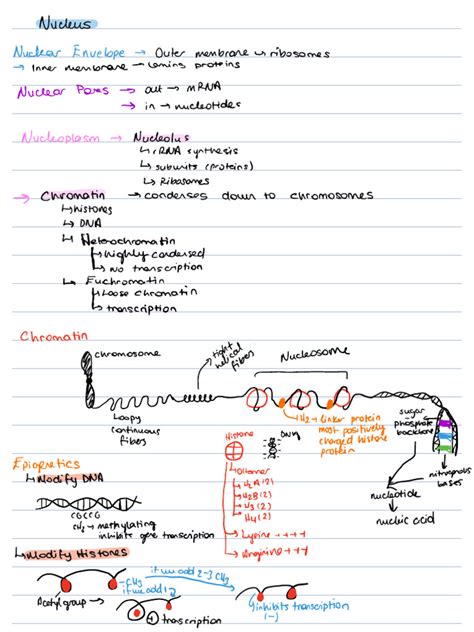 Nucleus
Nuclear Envelope → Outer membrane w ribosomes
→ Inner membrane → Lamins proteins
Nuclear Pores → out → mRNA
→ in → nucleotides
Nucleoplasm → Nucleolus
↳ rRNA synthesis
↳ subunits (proteins)
↳ Ribosomes
→ Chromatin → condenses down to chromosomes
↳ histones
↳ DNA
↳ Heterochromatin
↳ highly condensed
↳ no transcription
↳ Euchromatin
↳ loose chromatin
↳ transcription
Chromatin
chromosome
tight helical fibers
Nucleosome
Loopy
continuous
fibers
linker protein
most positively
charged histone
protein
sugar
phosphate
backbone
nitrogenous
bases
nucleotide
nucleic acid
Histone
DNA
↳ Octamer
↳ H2A (2)
↳ H2B (2)
↳ H3 (2)
↳ H4 (2)
↳ Lysine ++++
↳ Arginine +++
Epigenetics
↳ Modify DNA
CGCCG
CH3 → methylating
inhibits gene transcription
↳ Modify Histones
if we add 2-3 CH3
-CH3
if we add 1
Acetyl group
+ transcription
inhibits transcription
(-)